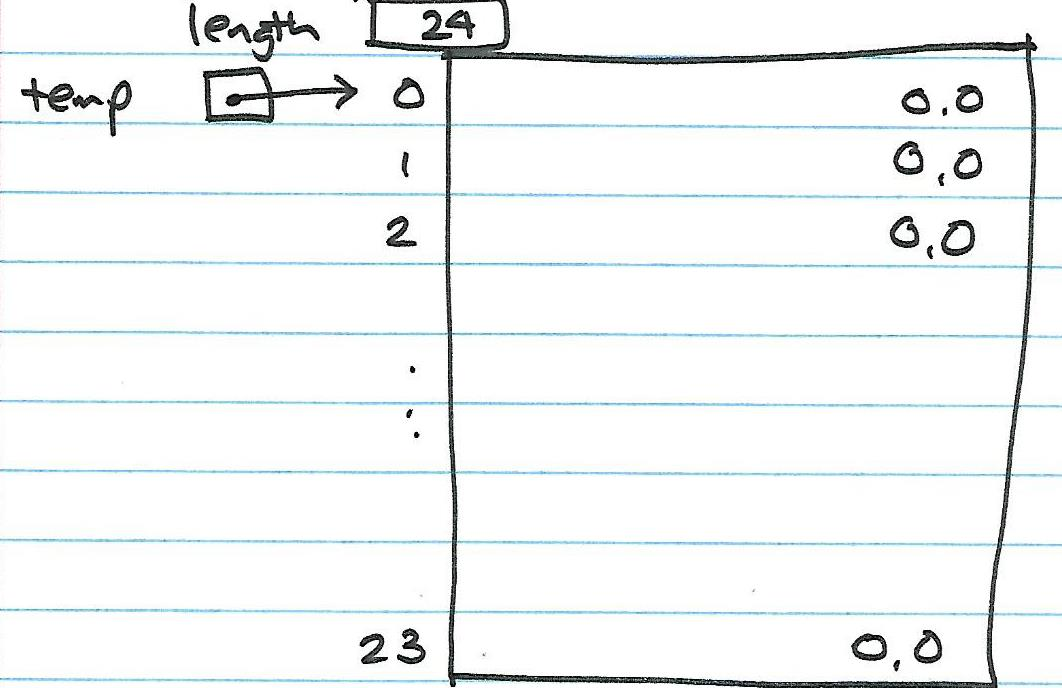 length 24
temp 0 0.0
1 0.0
2 0.0
23 0.0